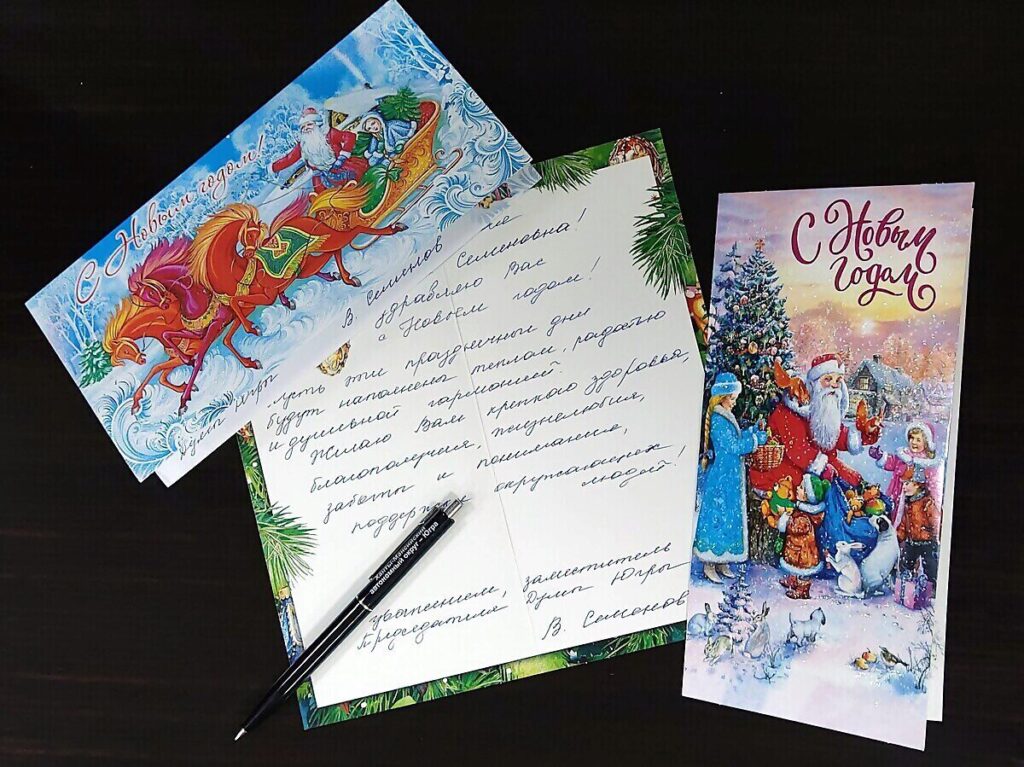 С Новым годом!
Семеновна!
здравляю Вас
с Новым годом!
эти праздничные дни
будут наполнены теплом, радостью
и душевной гармонией.
Желаю Вам крепкого здоровья,
благополучия, жизнелюбия,
заботы и понимания,
поддержки окружающих
людей!
уважением, заместитель
Председателя Думы Югры
В. Семенов
Думы Югры
В. Семенов
автономный округ – Югра
С Новым
годом